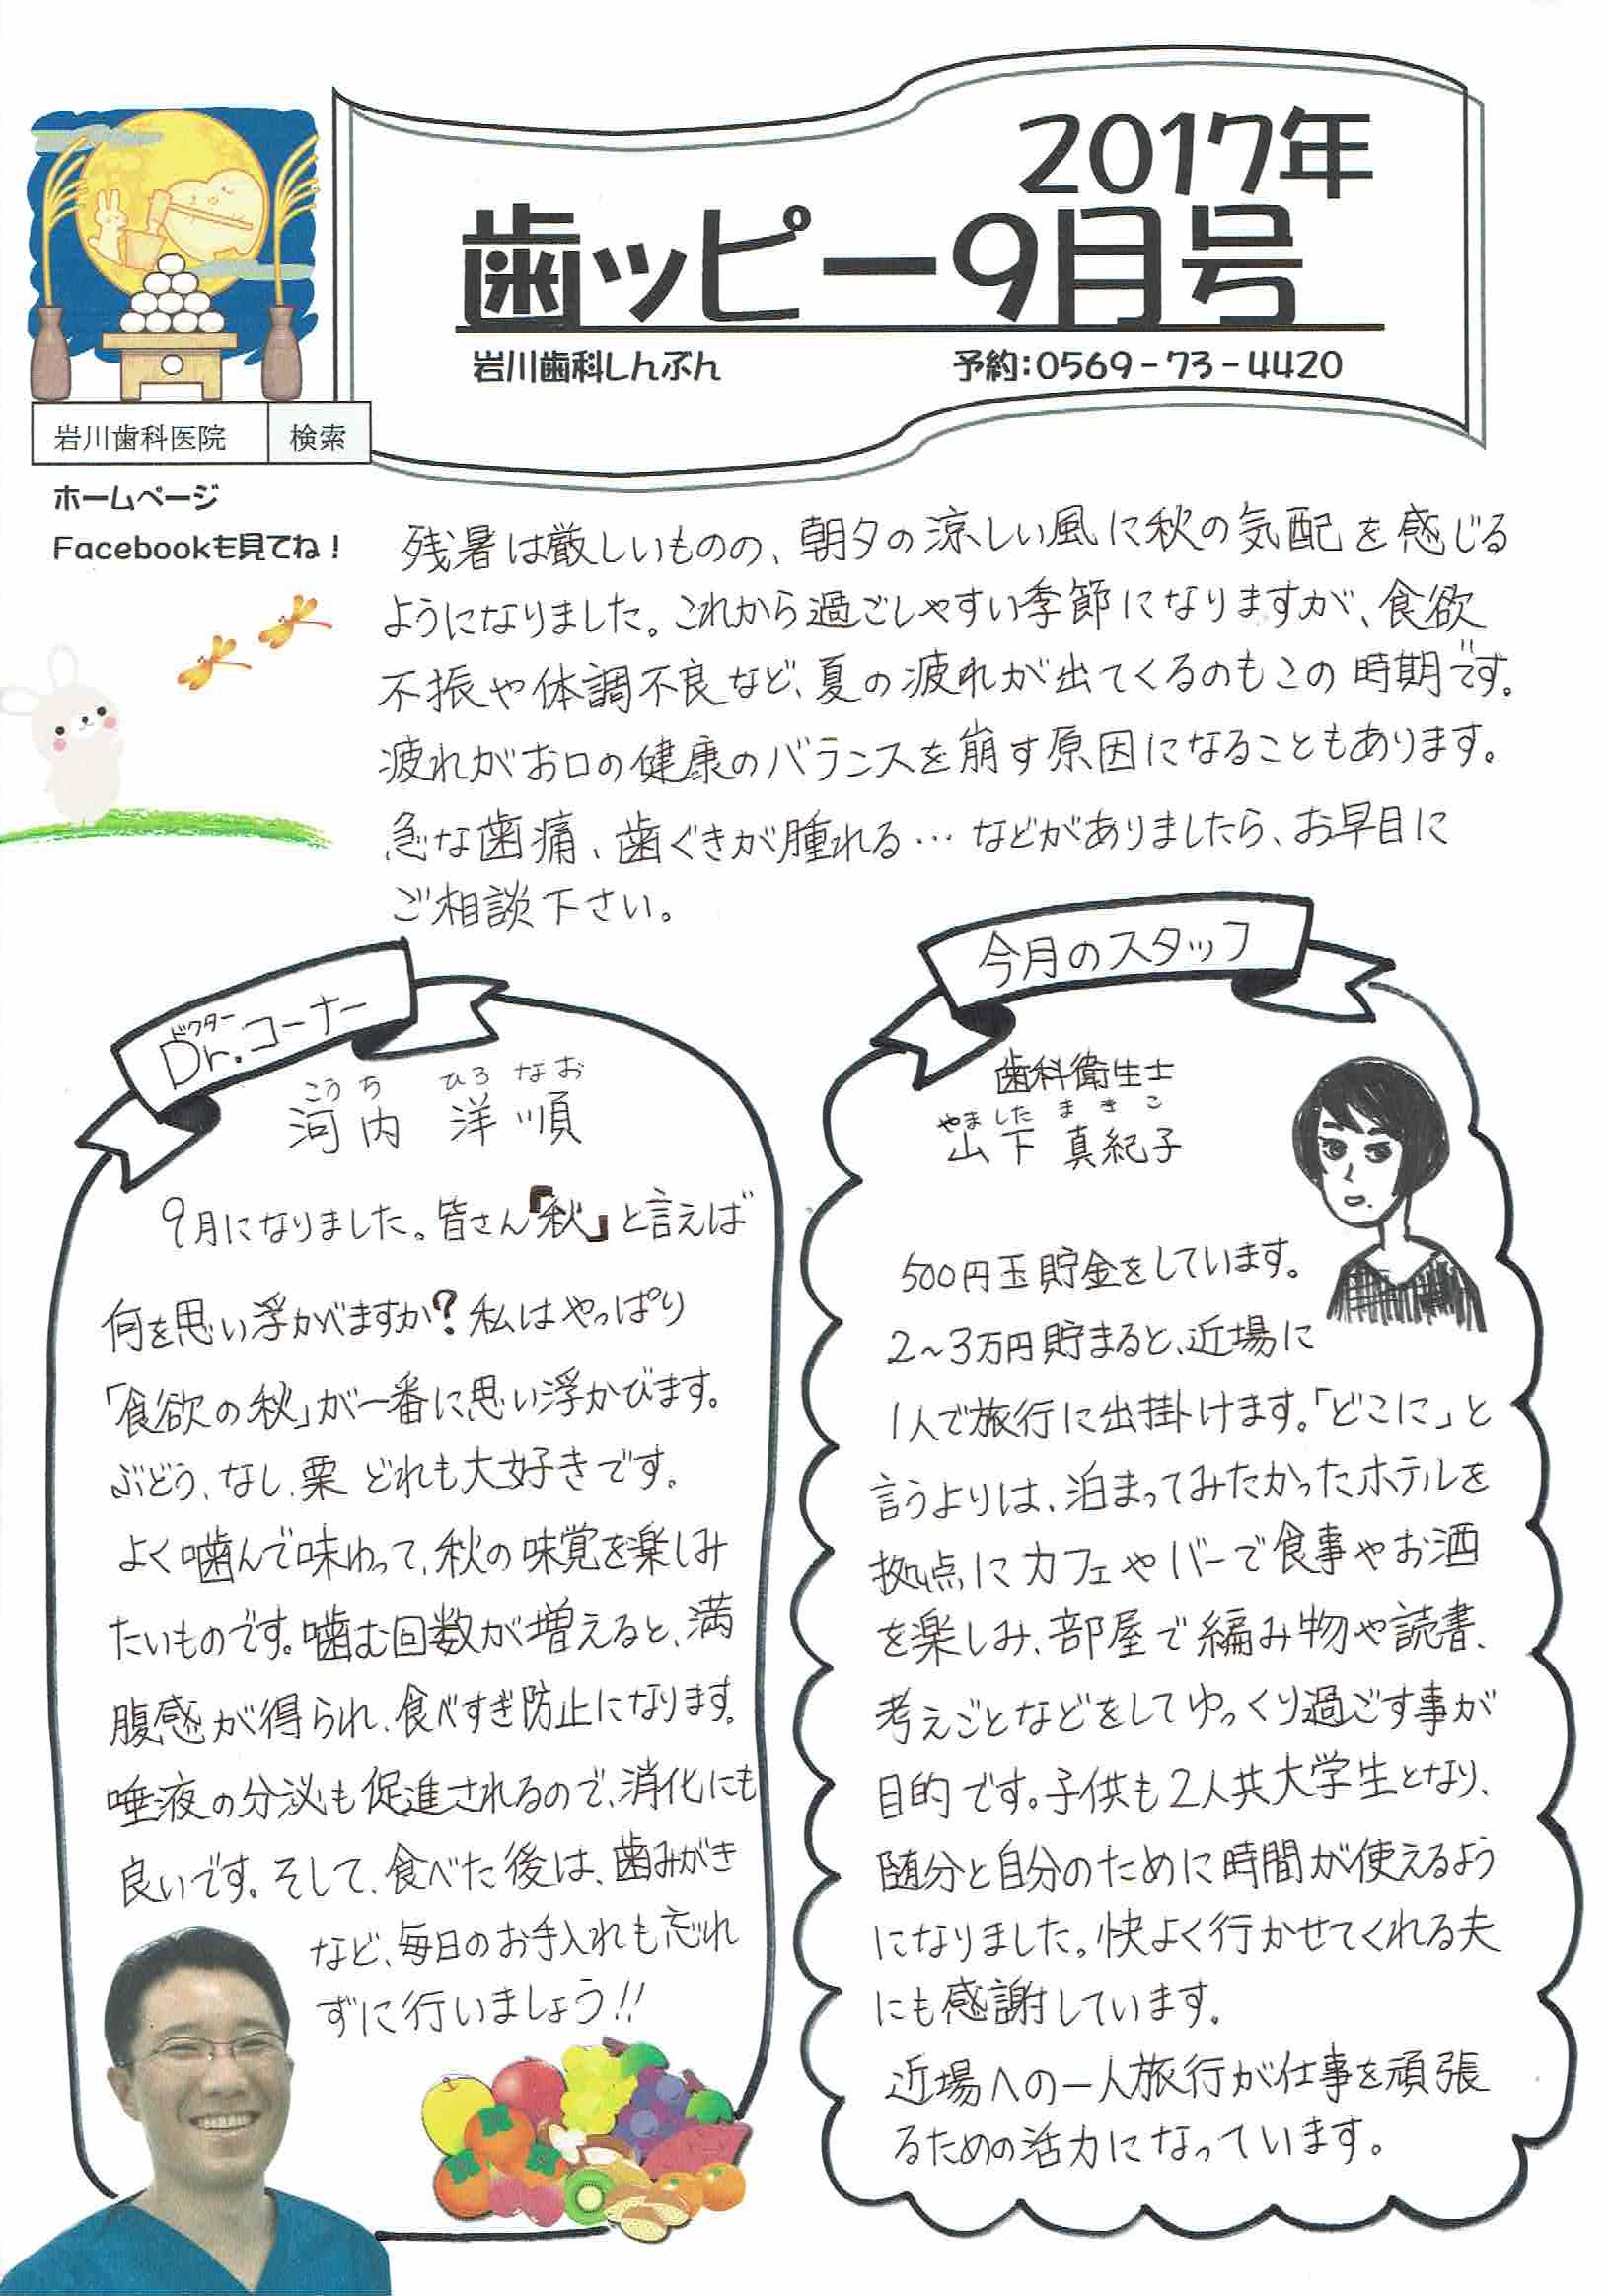 2017年
歯ッピー9月号
岩川歯科しんぶん 予約:0569-73-4420
岩川歯科医院 検索
ホームページ
Facebookも見てね!
残暑は厳しいものの、朝夕の涼しい風に秋の気配を感じる
ようになりました。これから過ごしやすい季節になりますが、食欲
不振や体調不良など、夏の疲れが出てくるのもこの時期です。
疲れがお口の健康のバランスを崩す原因になることもあります。
急な歯痛、歯ぐきが腫れる…などがありましたら、お早目に
ご相談下さい。
ドクター
Dr.コーナー
こうち ひろなお
河内 洋順
9月になりました。皆さん「秋」と言えば
何を思い浮かべますか?私はやっぱり
「食欲の秋」が一番に思い浮かびます。
ぶどう、なし、栗 どれも大好きです。
よく噛んで味わって、秋の味覚を楽しみ
たいものです。噛む回数が増えると、満
腹感が得られ、食べすぎ防止になります。
唾液の分泌も促進されるので、消化にも
良いです。そして、食べた後は、歯みがき
など、毎日のお手入れも忘れ
ずに行いましょう!!
今月のスタッフ
歯科衛生士
やました まきこ
山下 真紀子
500円玉貯金をしています。
2~3万円貯まると、近場に
1人で旅行に出掛けます。「どこに」と
言うよりは、泊まってみたかったホテルを
拠点にカフェやバーで食事やお酒
を楽しみ、部屋で編み物や読書、
考えごとなどをしてゆっくり過ごす事が
目的です。子供も2人共大学生となり、
随分と自分のために時間が使えるよう
になりました。快よく行かせてくれる夫
にも感謝しています。
近場への一人旅行が仕事を頑張
るための活力になっています。